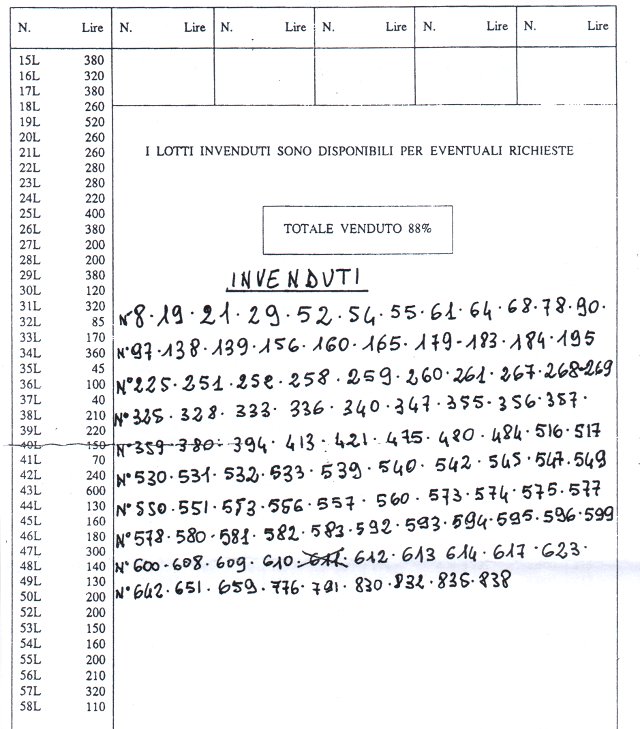 N. Lire N. Lire N. Lire N. Lire N. Lire N. Lire
15L 380
16L 320
17L 380
18L 260
19L 520
20L 260
21L 260
22L 280
23L 280
24L 220
25L 400
26L 380
27L 200
28L 200
29L 380
30L 120
31L 320
32L 85
33L 170
34L 360
35L 45
36L 100
37L 40
38L 210
39L 220
40L 150
41L 70
42L 240
43L 600
44L 130
45L 160
46L 180
47L 300
48L 140
49L 130
50L 200
52L 200
53L 150
54L 160
55L 200
56L 210
57L 320
58L 110
I LOTTI INVENDUTI SONO DISPONIBILI PER EVENTUALI RICHIESTE
TOTALE VENDUTO 88%
INVENDUTI
N° 8 · 19 · 21 · 29 · 52 · 54 · 55 · 61 · 64 · 68 · 78 · 90 ·
N° 97 · 138 · 139 · 156 · 160 · 165 · 179 · 183 · 184 · 195
N° 225 · 251 · 252 · 258 · 259 · 260 · 261 · 267 · 268 - 269
N° 325 · 328 · 333 · 336 · 340 · 347 · 355 · 356 · 357 ·
N° 359 · 380 · 394 · 413 · 421 · 475 · 480 · 484 · 516 · 517
N° 530 · 531 · 532 · 533 · 539 · 540 · 542 · 545 · 547 · 549
N° 550 · 551 · 553 · 556 · 557 · 560 · 573 · 574 · 575 · 577
N° 578 · 580 · 581 · 582 · 583 · 592 · 593 · 594 · 595 · 596 · 599
N° 600 · 608 · 609 · 610 · 612 · 613 · 614 · 617 · 623 ·
N° 642 · 651 · 659 · 776 · 791 · 830 · 832 · 835 · 838